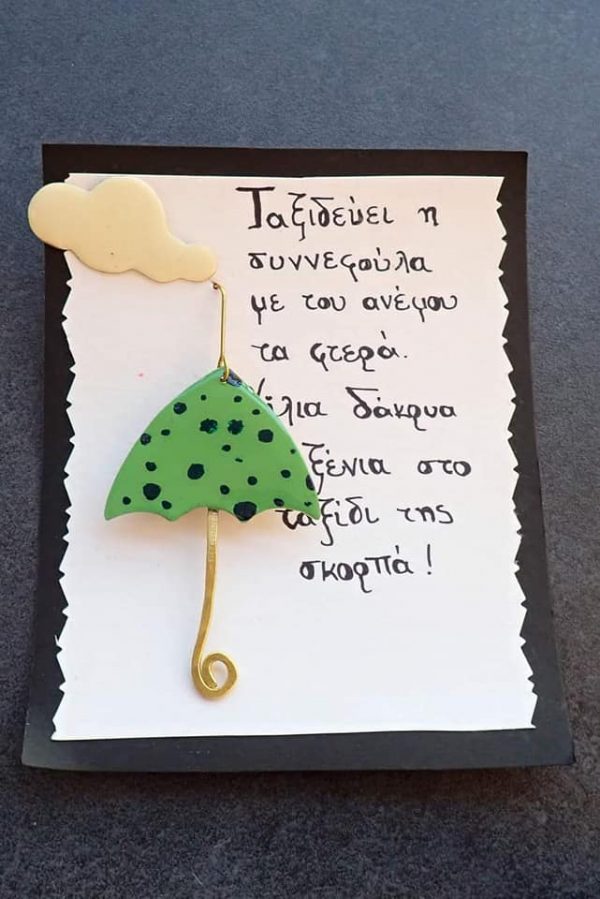 Ταξιδεύει η
συννεφούλα
με του ανέμου
τα φτερά.
δάκρυα
στο
ταξίδι της
σκορπά!